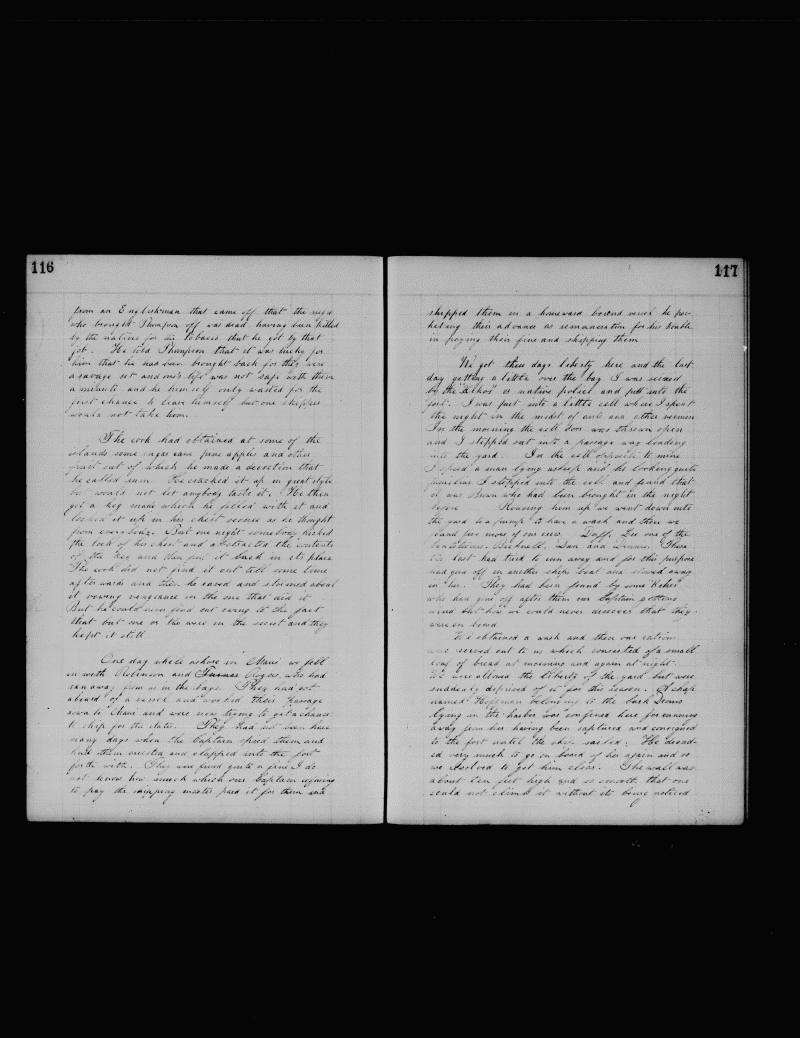 116
from an Englishman that came off that the
who brought Thompson off was dead having been killed
by the natives for the tobacco that he got by that
job. He told Thompson that it was lucky for
him that he had been brought back for they were
a savage set and one's life was not safe with them
a minute and he himself only waited for the
first chance to leave himself but our skipper
would not take him.
The cook had obtained at some of the
islands some sugar cane pine apples and other
fruit out of which he made a decoction that
he called rum. He cracked it up in great style
but would not let anybody taste it. He then
got a keg made which he filled with it and
locked it up in his chest secure as he thought
from everybody. But one night somebody picked
the lock of his chest and abstracted the contents
of the keg and then put it back in its place
The cook did not find it out till some time
afterwards and then he raved and stormed about
it vowing vengeance on the one that did it
But he could never find out owing to the fact
that but one or two were in the secret and they
kept it still
One day while ashore in Maui we fell
in with Robinson and Turner Rogers, who had
run away from us in the bays. They had got
aboard of a vessel and worked their passage
down to Maui and were now trying to get a chance
to ship for the states. They had not been here
many days when the Captain spied them and
had them arrested and clapped into the fort
forth with. They were fined quite a fine I do
not know how much which our Captain refusing
to pay the shipping master paid it for them and
117
shipped them in a homeward bound vessel he poc-
keting their advance as remuneration for his trouble
in paying their fine and shipping them
We got three days liberty here and the last
day getting a little over the bay I was seized
by the "Kilhos" or native police and put into the
fort. I was put into a little cell where I spent
the night in the midst of and other vermin
In the morning the cell door was thrown open
and I stepped out into a passage way leading
into the yard. In the cell opposite to mine
I spied a man lying asleep and he looking quite
familiar I stepped into the cell and found that
it was Brown who had been brought in the night
before Rousing him up we went down into
the yard to a pump to have a wash and there we
found five more of our crew. Duff, Lee one of the
Bicknell, Dan and These
last had tried to run away and for this purpose
had gone off in another ships boat and stowed away
in her. They had been found by some "Kihos"
who had gone off after them our Captain getting
wind but how we could never discover that they
were on board
We obtained a wash and then our ration
was served out to us which consisted of a small
loaf of bread at morning and again at night.
We were allowed the liberty of the yard but were
suddenly deprived of it for this reason. A chap
named Hoffman belonging to the bark Deems
lying in the harbor was confined here for running
away from her having been captured and consigned
to the fort until the ship sailed. He dread-
ed very much to go on board of her again and so
we resolved to get him clear. The wall was
about ten feet high and so smooth that one
could not climb it without its being noticed